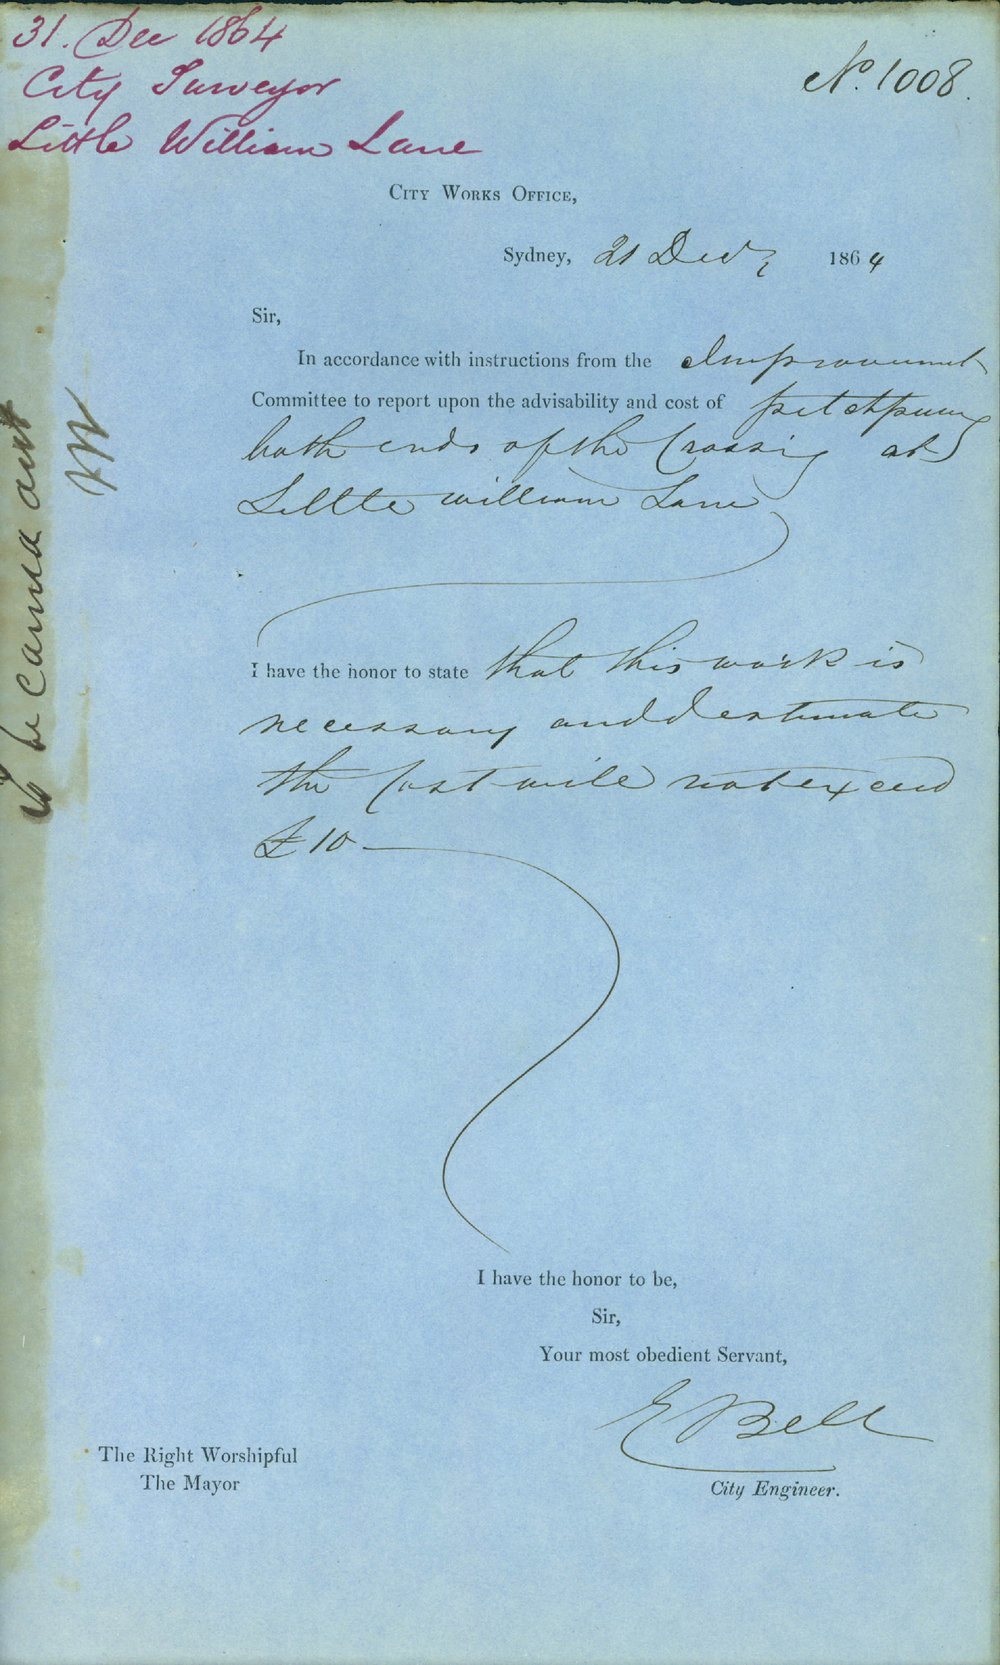 31. Dec 1864
City Surveyor
Little William Lane
No. 1008.
City Works Office,
Sydney, 21 Decr 1864
Sir,
In accordance with instructions from the Improvement
Committee to report upon the advisability and cost of
both ends of the Crossing at
Little William Lane
I have the honor to state that this work is
necessary and estimate
the Cost will not exceed
£10
I have the honor to be,
Sir,
Your most obedient Servant,
E Bell
City Engineer.
The Right Worshipful
The Mayor
to be carried out